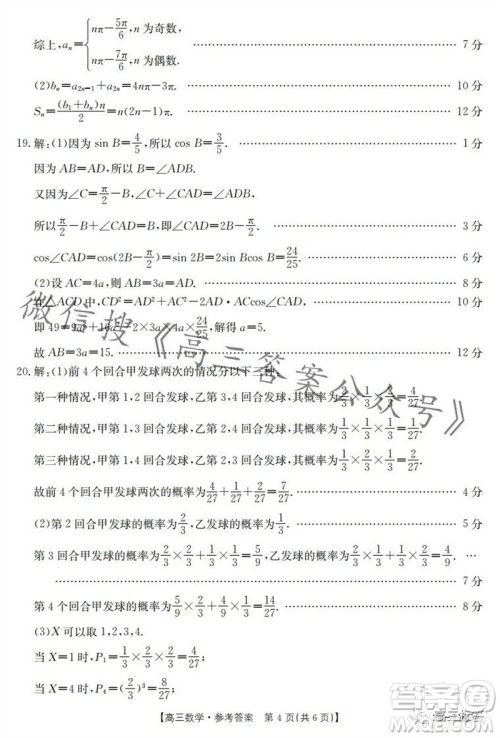 综上,aₙ={nπ−5π/6,n为奇数,
nπ−7π/6,n为偶数. 7分
(2)bₙ=a₂ₙ₋₁+a₂ₙ=4nπ−3π. 10分
Sₙ=(b₁+bₙ)n/2=2n²π−nπ. 12分
19.解:(1)因为sin B=4/5,所以cos B=3/5. 1分
因为AB=AD,所以∠B=∠ADB.
又因为∠C+∠CAD=∠ADB,且∠C=π/2−∠B,
所以π/2−B+∠CAD=∠B,即∠CAD=2∠B−π/2. 3分
cos∠CAD=cos(2B−π/2)=sin 2B=2sin Bcos B=24/25.
(2)设AC=4a,则AB=3a=AD.
在△ACD中,CD²=AD²+AC²−2AD·ACcos∠CAD, 10分
即49=9a²+16a²−2×3a×4a×24/25,解得a=5.
故AB=3a=15. 12分
20.解:(1)前4个回合甲发球两次的情况分以下三种.
第一种情况,甲第1,2回合发球,乙第3,4回合发球,其概率为2/3×1/3×2/3=4/27.
第二种情况,甲第1,3回合发球,乙第2,4回合发球,其概率为1/3×1/3×1/3=1/27.
第三种情况,甲第1,4回合发球,乙第2,3回合发球,其概率为1/3×2/3×1/3=2/27.
故前4个回合甲发球两次的概率为4/27+1/27+2/27=7/27. 4分
(2)第2回合甲发球的概率为2/3,乙发球的概率为1/3. 5分
第3回合甲发球的概率为2/3×2/3+1/3×1/3=5/9,乙发球的概率为4/9.
7分
第4个回合甲发球的概率为5/9×2/3+4/9×1/3=14/27. 8分
(3)X可以取1,2,3,4.
当X=1时,P₁=1/3×2/3×2/3=4/27;
当X=2时,
【高三数学·参考答案 第4页(共6页)】
微信搜《高三答案公众号》